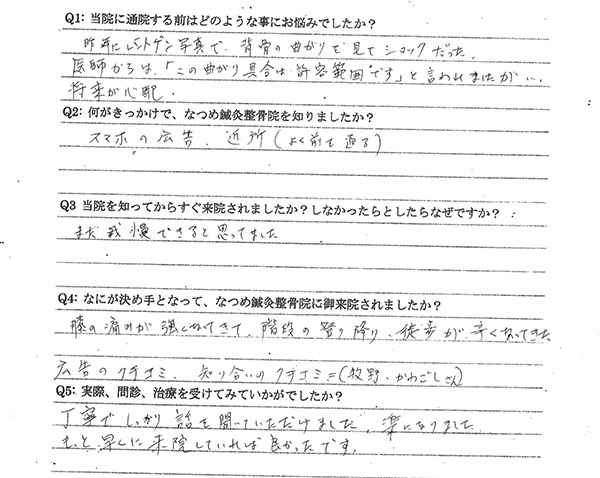 Q1: 当院に通院する前はどのような事にお悩みでしたか？
昨年にレントゲン写真で、背骨の曲がりを見てショックだった。
医師からは、「この曲がり具合は許容範囲です」と言われましたが…
将来が心配．
Q2: 何がきっかけで、なつめ鍼灸整骨院を知りましたか？
スマホの広告、近所（よく前を通る）
Q3 当院を知ってからすぐ来院されましたか？しなかったらとしたらなぜですか？
まだ我慢できると思ってました
Q4: なにが決め手となって、なつめ鍼灸整骨院に御来院されましたか？
膝の痛みが強くなってきて、階段の登り降り、徒歩が辛くなってきた
広告のクチコミ、知り合いのクチコミ＝（牧野・かわごしさん）
Q5: 実際、問診、治療を受けてみていかがでしたか？
丁寧でしっかり話を聞いていただけました。楽になりました
もっと早くに来院していれば良かったです。